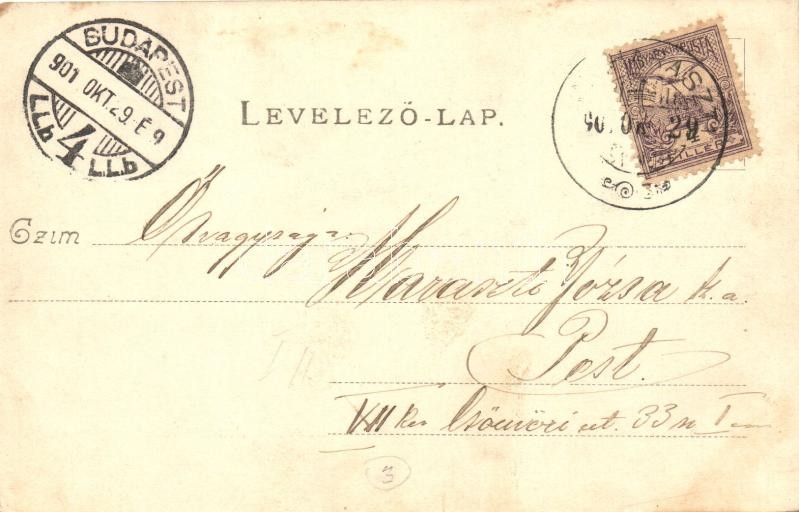 BUDAPEST
901 OKT. 29. É 9
4
LEVELEZŐ-LAP.
MAGYAR KIR. POSTA
FILLÉR
Czim Őnagysága
Maraszti Józsa k. a.
Pest.
VII ker Csömöri út. 33 sz I em
3